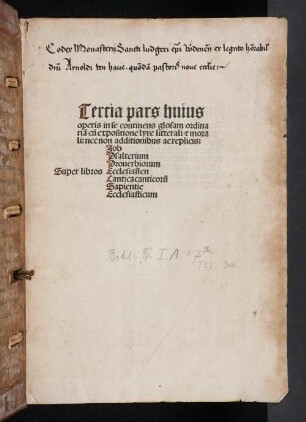 Codex Monasterij Sancti ludgeri epi Werdenen ex legato hōrabil
dnī Arnoldi ten have quōdā pastoris nove ecclie
Tertia pars huius
operis in se continens glosam ordina
riā cū expositione lyre litterali et mora
li: necnon additionibus ac replicis:
Job
Psalterium
Prouerbiorum
Super libros Ecclesiasten
Cantica canticorū
Sapientie
Ecclesiasticum
Bibl. I A